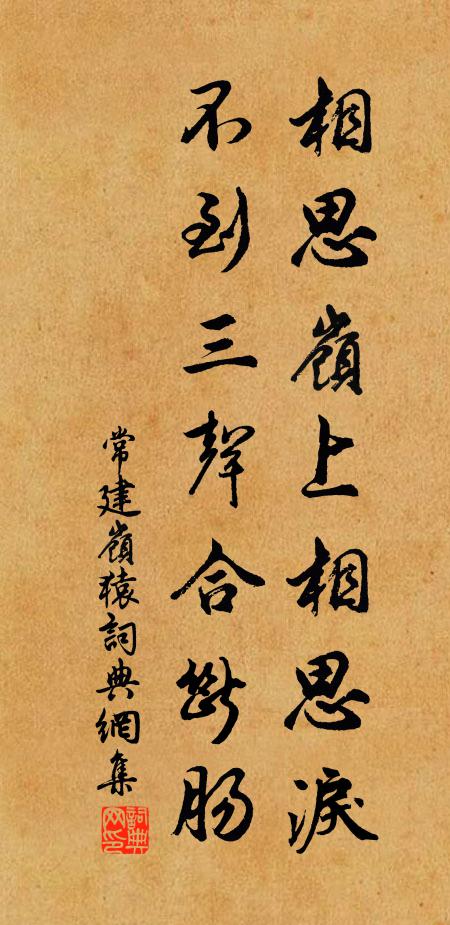 相思嶺上相思淚
不到三聲合斷腸
常建嶺猿詞典網集
詞典网印